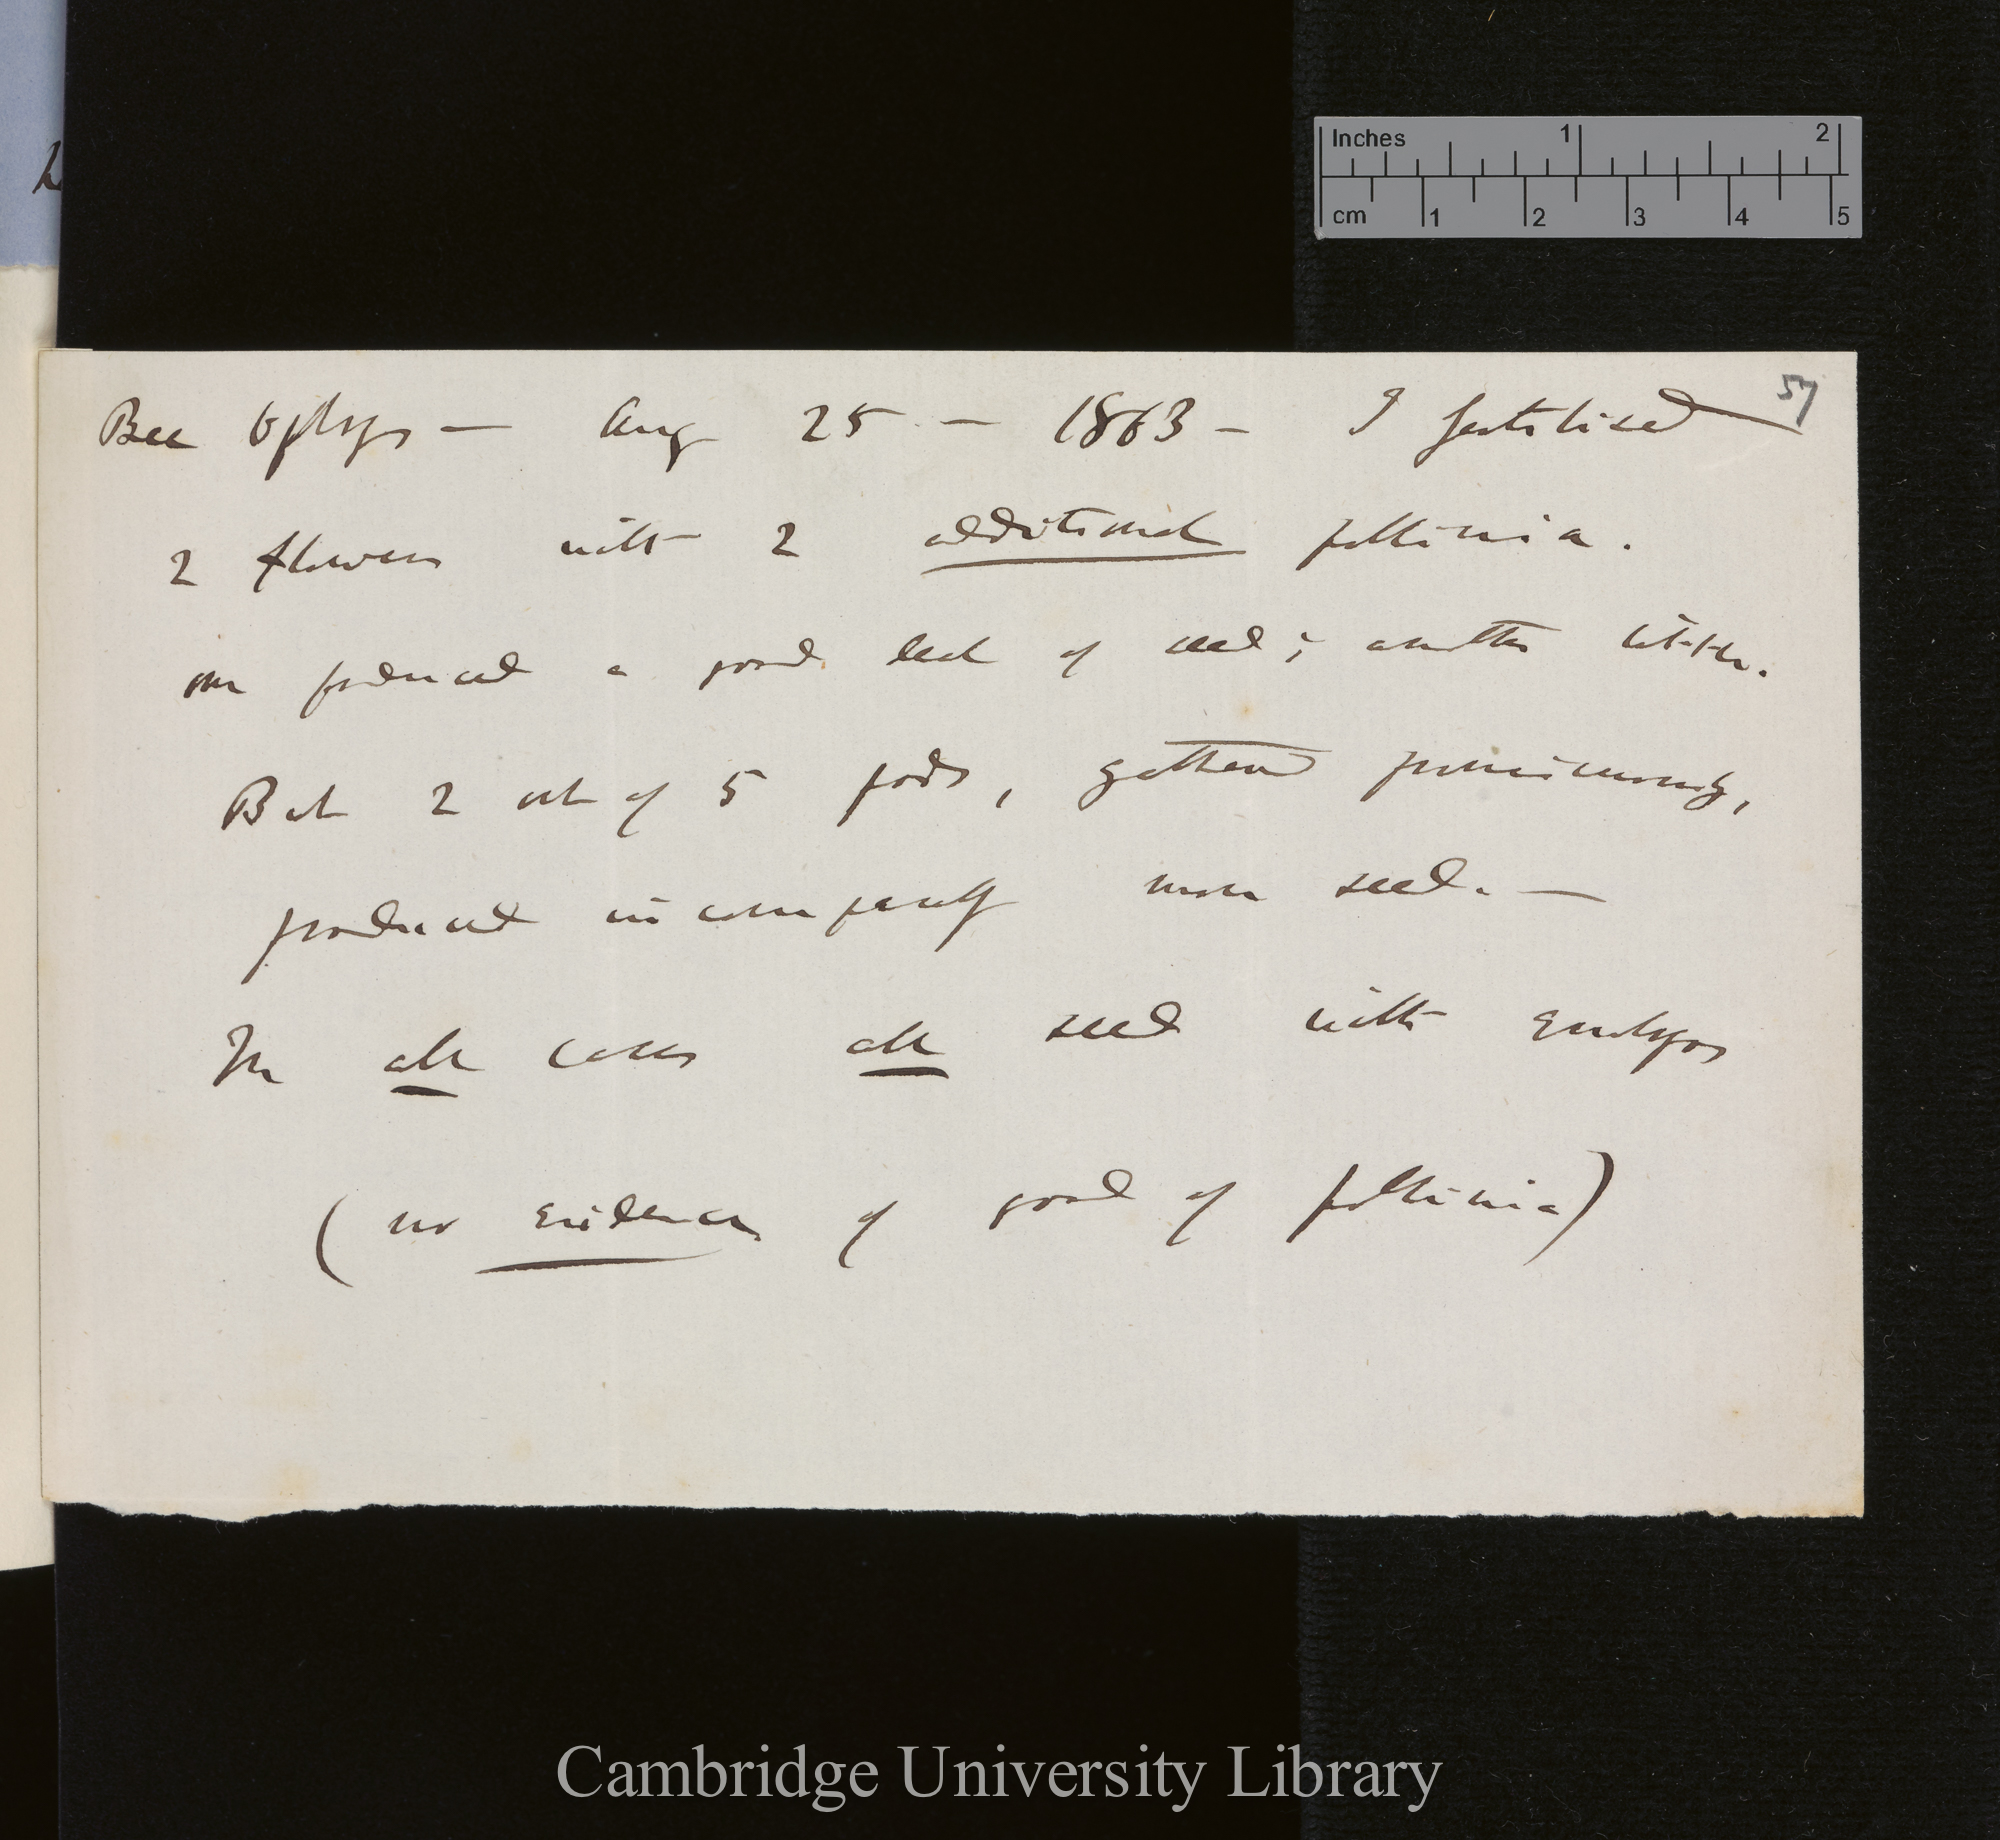 Inches 1 2
cm 1 2 3 4 5
57
Bee Ophrys — Aug 25 — 1863 — I fertilised
2 flowers with 2 additional pollinia.
one produced a good deal of seed; another little.
But 2 out of 5 pods, gathered promiscuously,
produced incomparably more seed. —
In all cases all seed with embryos
(no evidence of good of pollinia)
Cambridge University Library